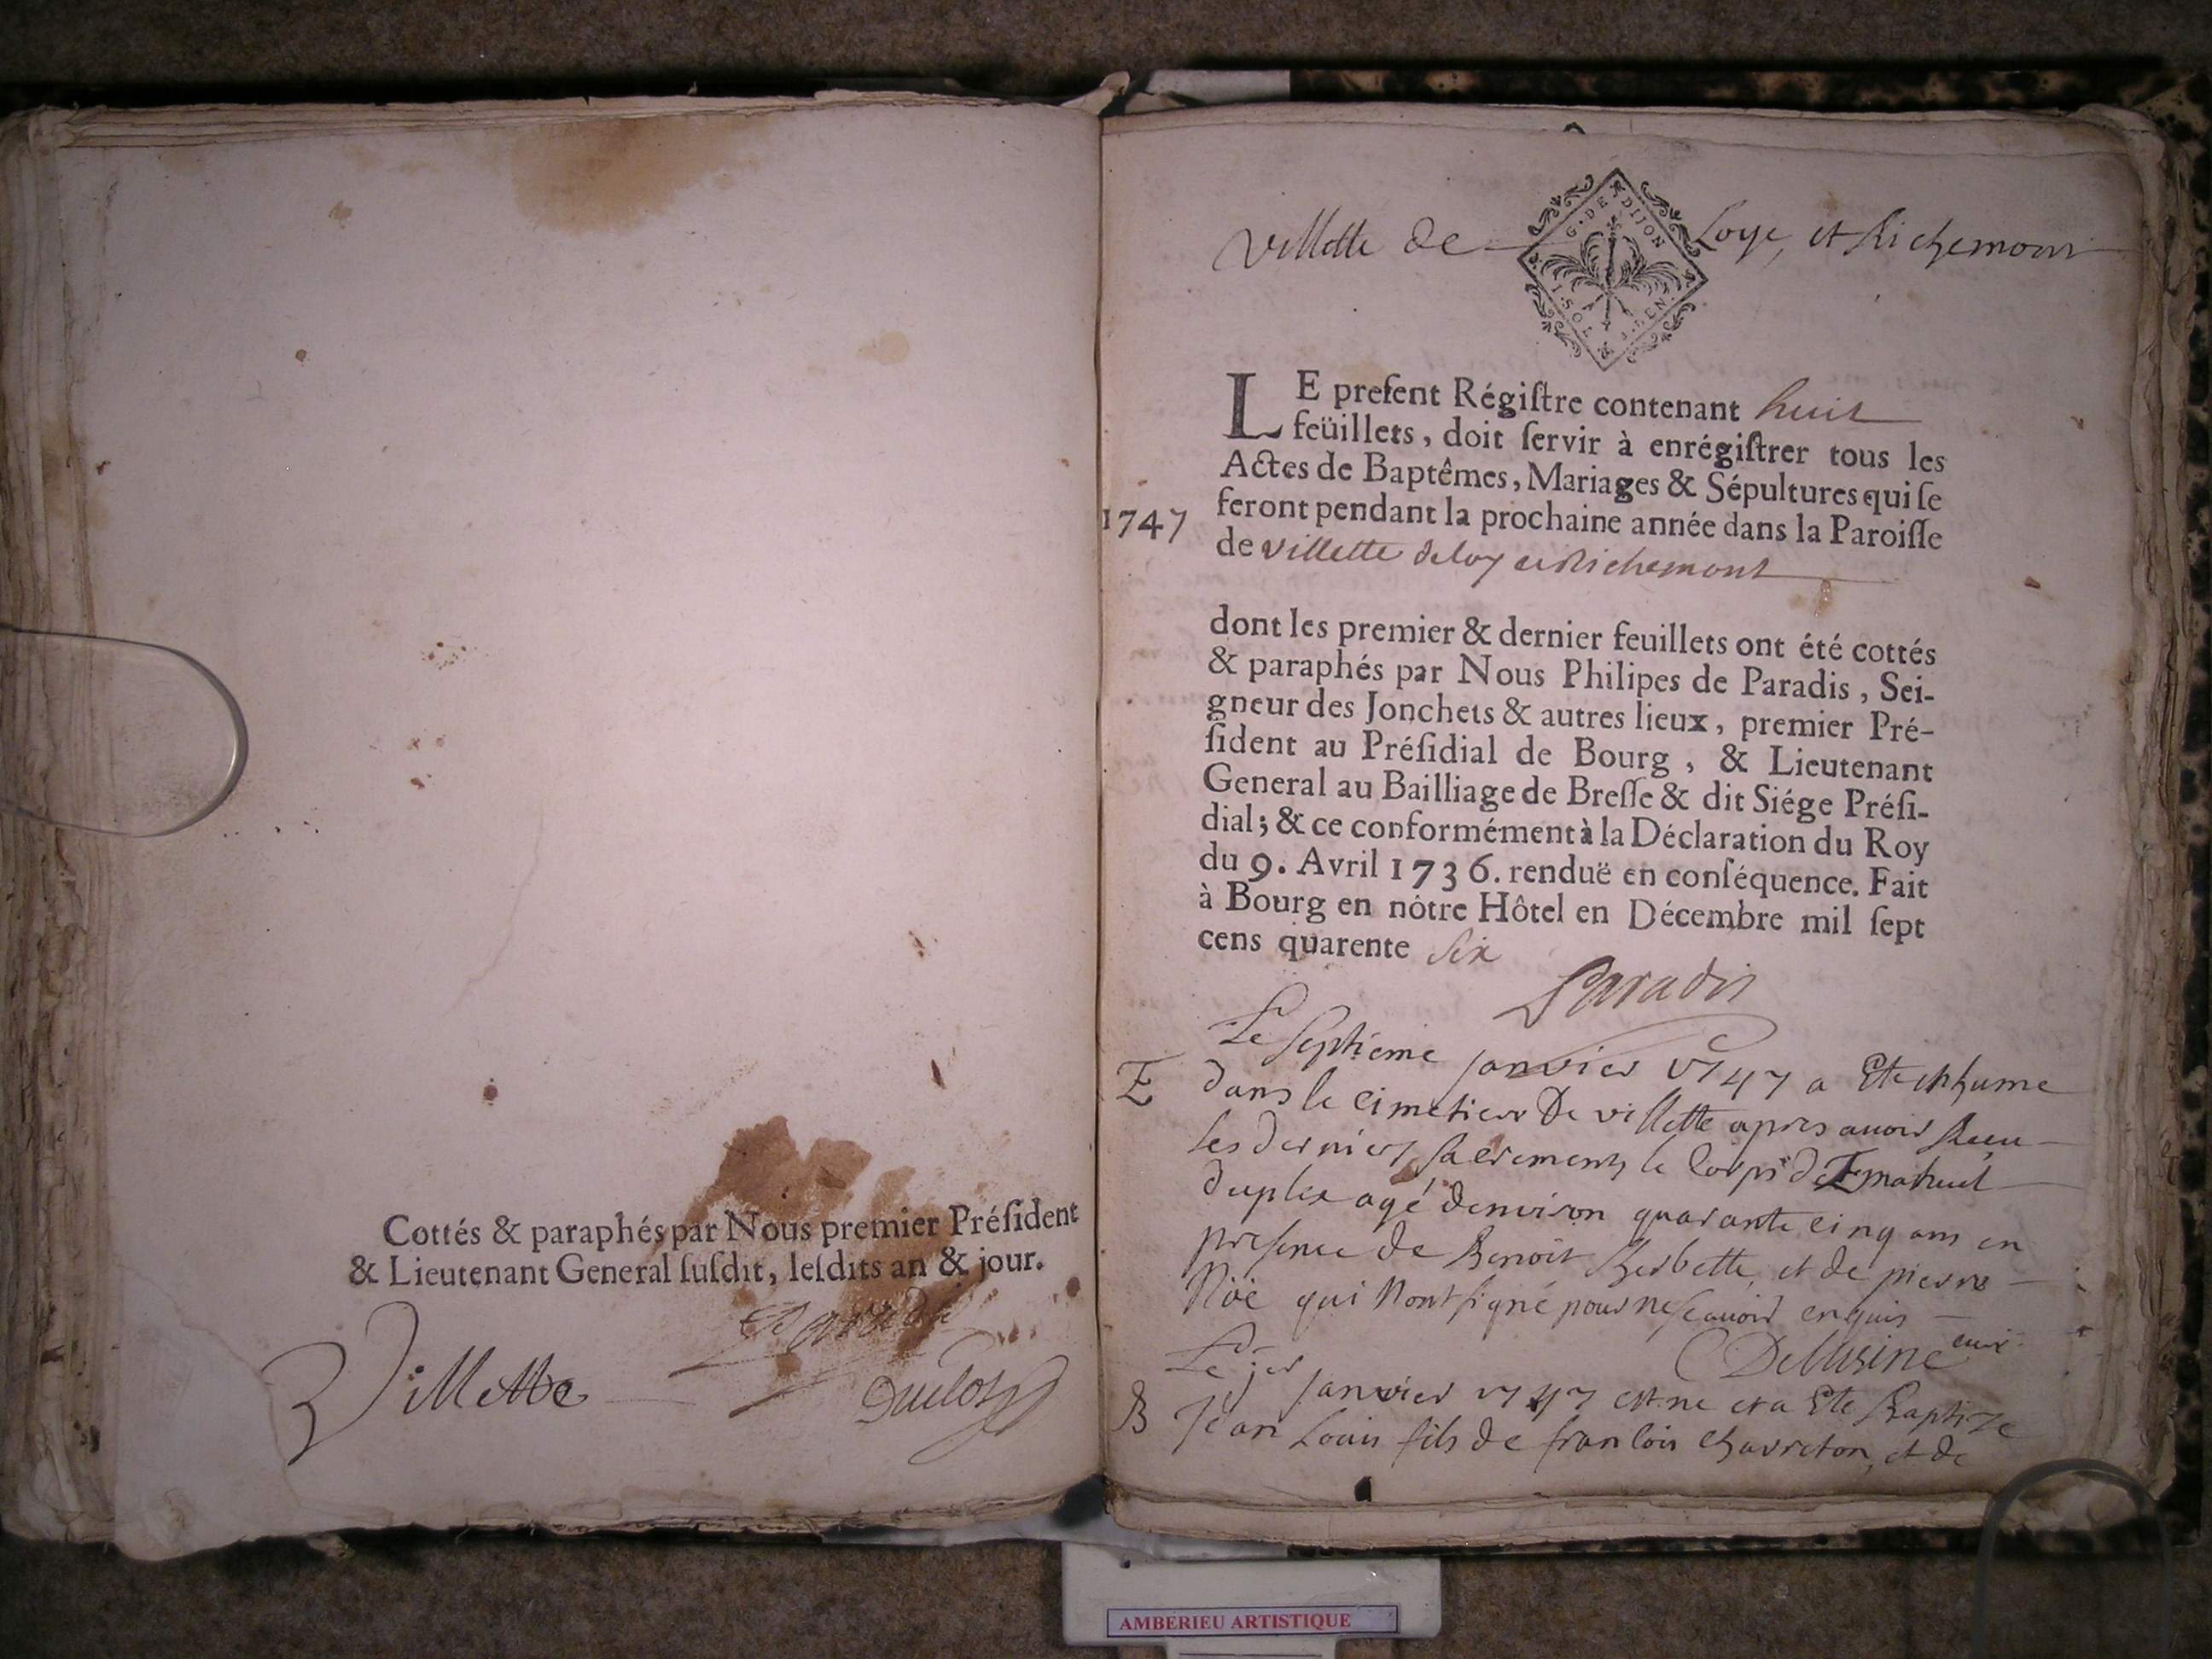 Cottés & paraphés par Nous premier Préſident
& Lieutenant General ſuſdit, leſdits an & jour.
Paradis
Villette
Duclos
Villette de Loye, et Richemont
G. DE DIJON
1.SOL 4.DEN.
LE preſent Régiſtre contenant huit
feüillets, doit ſervir à enrégiſtrer tous les
Actes de Baptêmes, Mariages & Sépultures qui ſe
feront pendant la prochaine année dans la Paroiſſe
1747
de villette deloy et Richemont
dont les premier & dernier feuillets ont été cottés
& paraphés par Nous Philipes de Paradis, Sei-
gneur des Jonchets & autres lieux, premier Pré-
ſident au Préſidial de Bourg, & Lieutenant
General au Bailliage de Breſſe & dit Siége Préſi-
dial; & ce conformément à la Déclaration du Roy
du 9. Avril 1736. renduë en conſéquence. Fait
à Bourg en nôtre Hôtel en Décembre mil ſept
cens quarente six
Paradis
Le septieme janvier 1747 a Ete inhume
E dans le cimetiere De villette apres avoir Receu
les derniers sacrements le corps de Emanuel
duplex agé denviron quarante cinq ans en
presence de Benoit Herbette, et de pierre
Nöé qui Nont signé pour ne scavoir enquis
Debusine curé
Le jer janvier 1747 est ne et a Ete Baptize
B Jean Louis fils de francois Chavreton, et de
AMBERIEU ARTISTIQUE